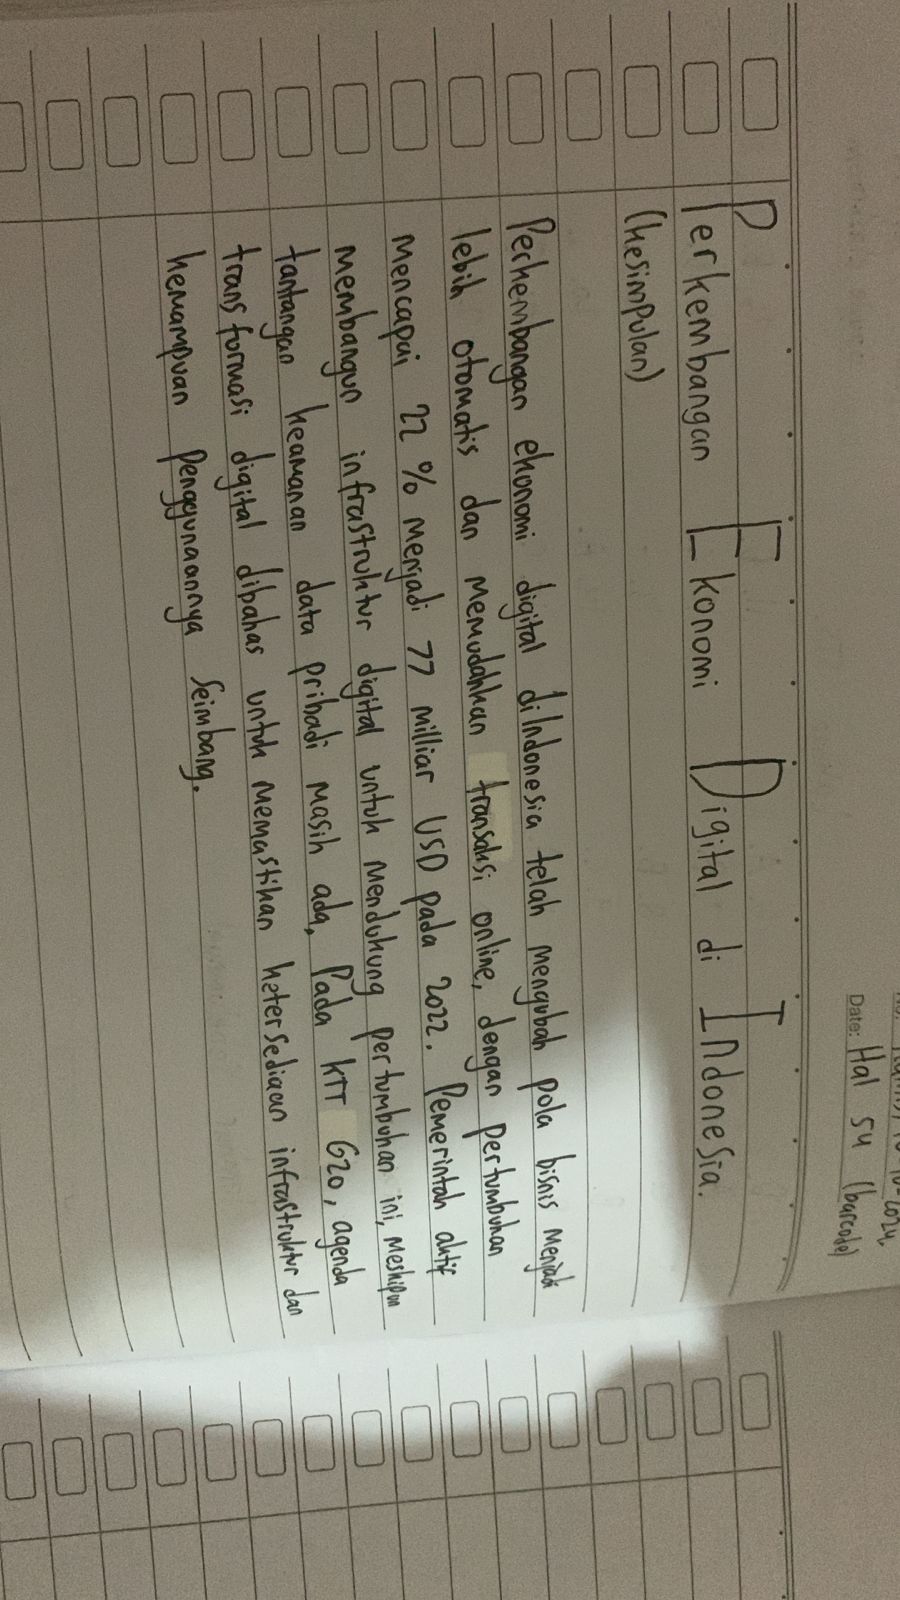 Date: Hal 54 (barcode)
Perkembangan Ekonomi Digital di Indonesia.
(kesimpulan)
Perkembangan ekonomi digital diIndonesia telah mengubah pola bisnis menjadi
lebih otomatis dan memudahkan transaksi online, dengan pertumbuhan
mencapai 22 % menjadi 77 milliar USD pada 2022. Pemerintah aktif
membangun infrastruktur digital untuk mendukung pertumbuhan ini, meskipun
tantangan keamanan data pribadi masih ada, Pada KTT G20, agenda
transformasi digital dibahas untuk memastikan ketersediaan infrastruktur dan
kemampuan penggunaannya seimbang.